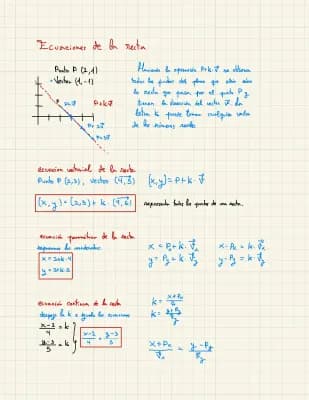 Ecuaciones de la recta
Punto P (2,1)
Vector (1,-1)
Haciendo la operación P+k·v⃗ se obtienen
todos los puntos del plano que están sobre
la recta que pasa por el punto P y
tienen la dirección del vector v⃗. La
letra k puede tomar cualquier valor
de los números reales
P
P+k·v⃗
ecuación vectorial de la recta
Punto P (2,3), vector (4,5) [x,y] = P+k·v⃗
(x,y) = (2,3) + k·(4,5) representa todos los puntos de una recta.
ecuación paramétrica de la recta
separamos las coordenadas
x = 2+k·4
y = 3+k·5
x = Px + k·v⃗x x - Px = k·v⃗x
y = Py + k·v⃗y y - Py = k·v⃗y
ecuación continua de la recta
despejo la k e igualo las ecuaciones
x-2/4 = k
y-3/5 = k
x-2/4 = y-3/5
k =
k =
= y-Py/v⃗y